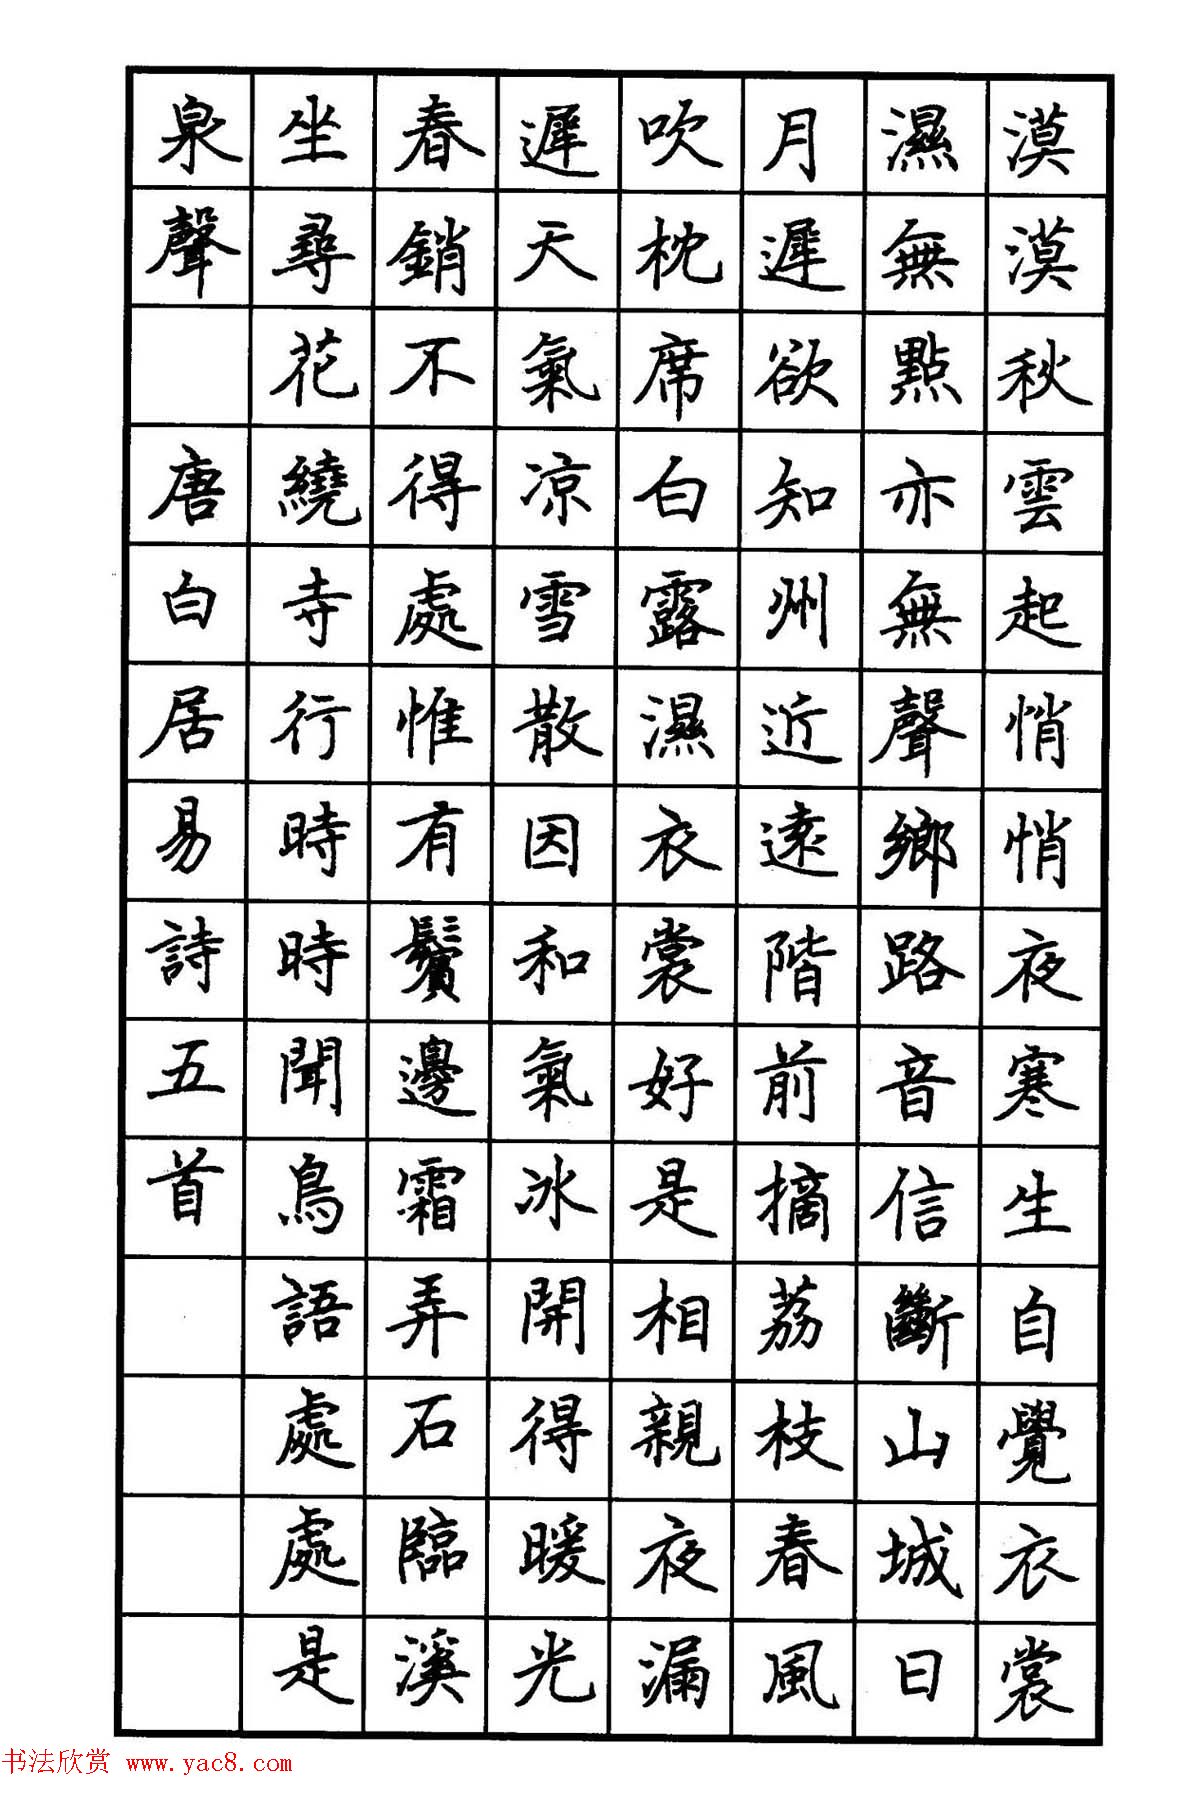 漠漠秋雲起悄悄夜寒生自覺衣裳
濕無點亦無聲鄉路音信斷山城日
月遲欲知州近遠階前摘荔枝春風
吹枕席白露濕衣裳好是相親夜漏
遲天氣涼雪散因和氣冰開得暖光
春銷不得處惟有鬢邊霜弄石臨溪
坐尋花繞寺行時時聞鳥語處處是
泉聲 唐白居易詩五首
书法欣赏 www.yac8.com